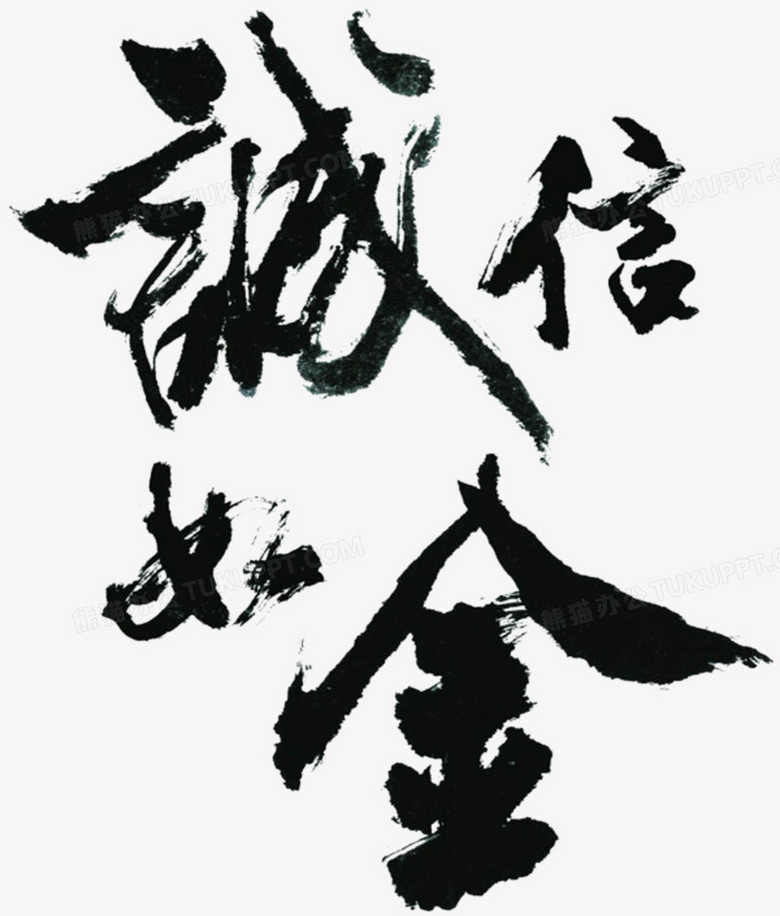 誠信
如金
熊猫办公 TUKUPPT.COM
熊猫办公 TUKUPPT.COM
熊猫办公 TUKUPPT.COM
熊猫办公 TUKUPPT.COM